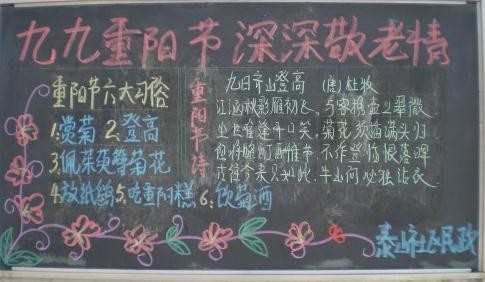 九九重阳节深深敬老情
重阳节六大习俗
1.赏菊 2.登高
3.佩茱萸簪菊花
4.放纸鹞 5.吃重阳糕 6.饮菊酒
重阳节诗
九日齐山登高 (唐)杜牧
江涵秋影雁初飞,与客携壶上翠微
尘世难逢开口笑,菊花须插满头归
但将酩酊酬佳节,不作登临恨落晖
古往今来只如此,牛山何必独沾衣
社区民政